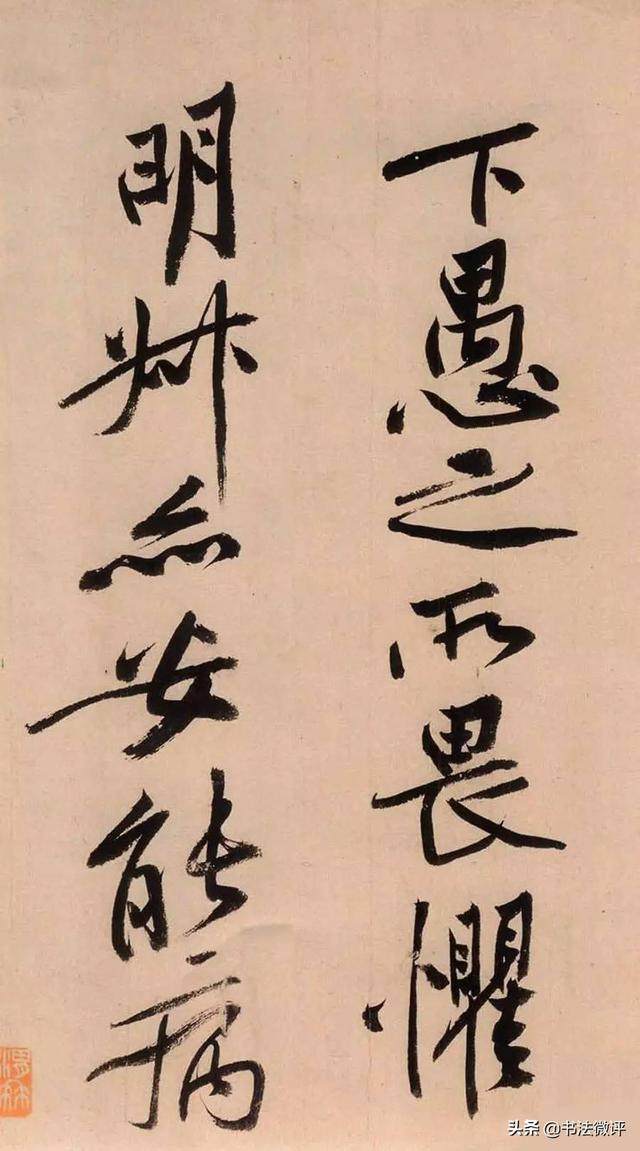 下愚之所畏懼
明 亦安能病
头条 @书法微评